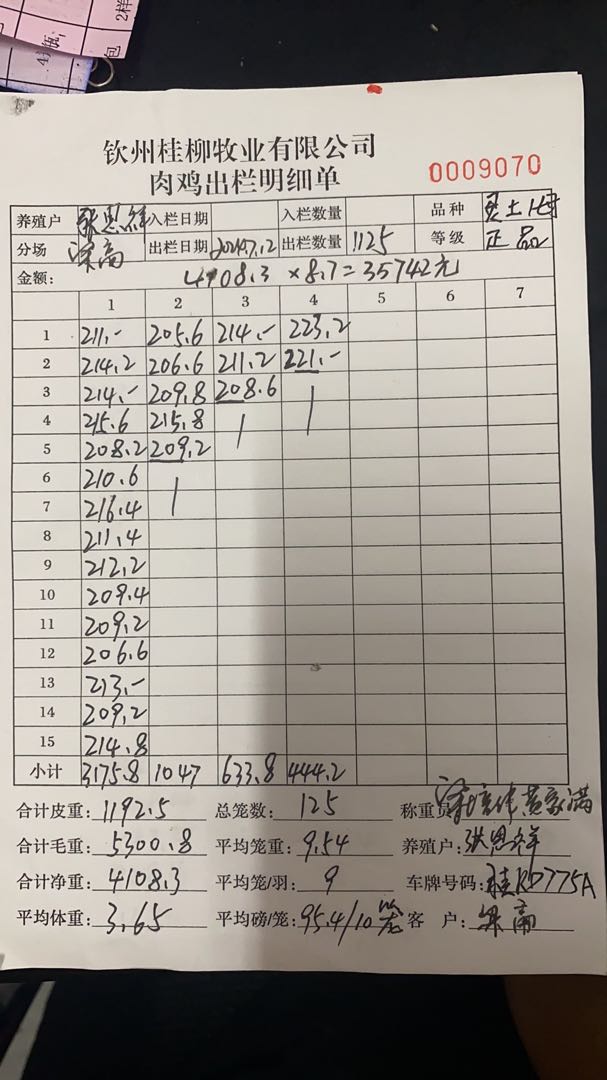 2样
4瓶
包
钦州桂柳牧业有限公司
肉鸡出栏明细单
0009070
养殖户 张恩祥 入栏日期 入栏数量 品种
分场 出栏日期 出栏数量 1125 等级 正品
金额: 4108.3 ×8.7=35742元
1 2 3 4 5 6 7
1 211.- 205.6 214.- 223.2
2 214.2 206.6 211.2 221.-
3 214.- 209.8 208.6
4 215.6 215.8
5 208.2 209.2
6 210.6
7 216.4
8 211.4
9 212.2
10 209.4
11 209.2
12 206.6
13 213.-
14 209.2
15 214.8
小计 3175.8 1047 633.8 444.2
合计皮重: 1192.5 总笼数: 125 称重员:
合计毛重: 5300.8 平均笼重: 9.54 养殖户: 张恩祥
合计净重: 4108.3 平均笼/羽: 9 车牌号码: 桂KD775A
平均体重: 3.65 平均磅/笼: 95.4/10笼 客 户: